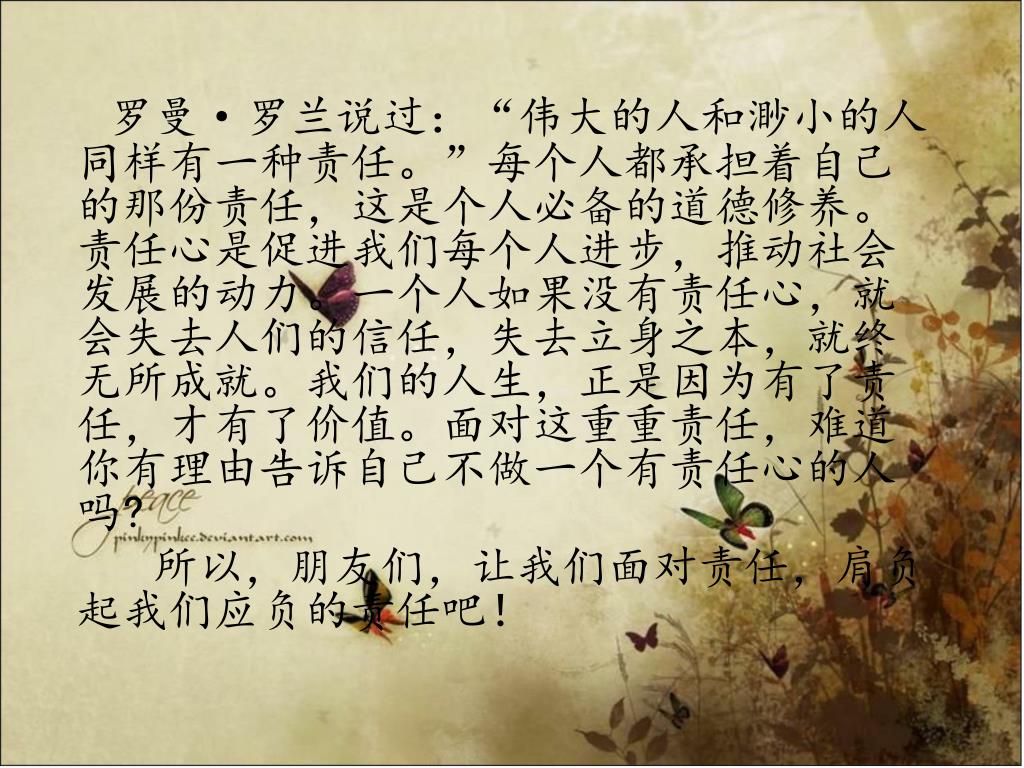 罗曼·罗兰说过：“伟大的人和渺小的人
同样有一种责任。”每个人都承担着自己
的那份责任，这是个人必备的道德修养。
责任心是促进我们每个人进步，推动社会
发展的动力。一个人如果没有责任心，就
会失去人们的信任，失去立身之本，就终
无所成就。我们的人生，正是因为有了责
任，才有了价值。面对这重重责任，难道
你有理由告诉自己不做一个有责任心的人
吗？
peace
pinkypinkee.deviantart.com
所以，朋友们，让我们面对责任，肩负
起我们应负的责任吧！